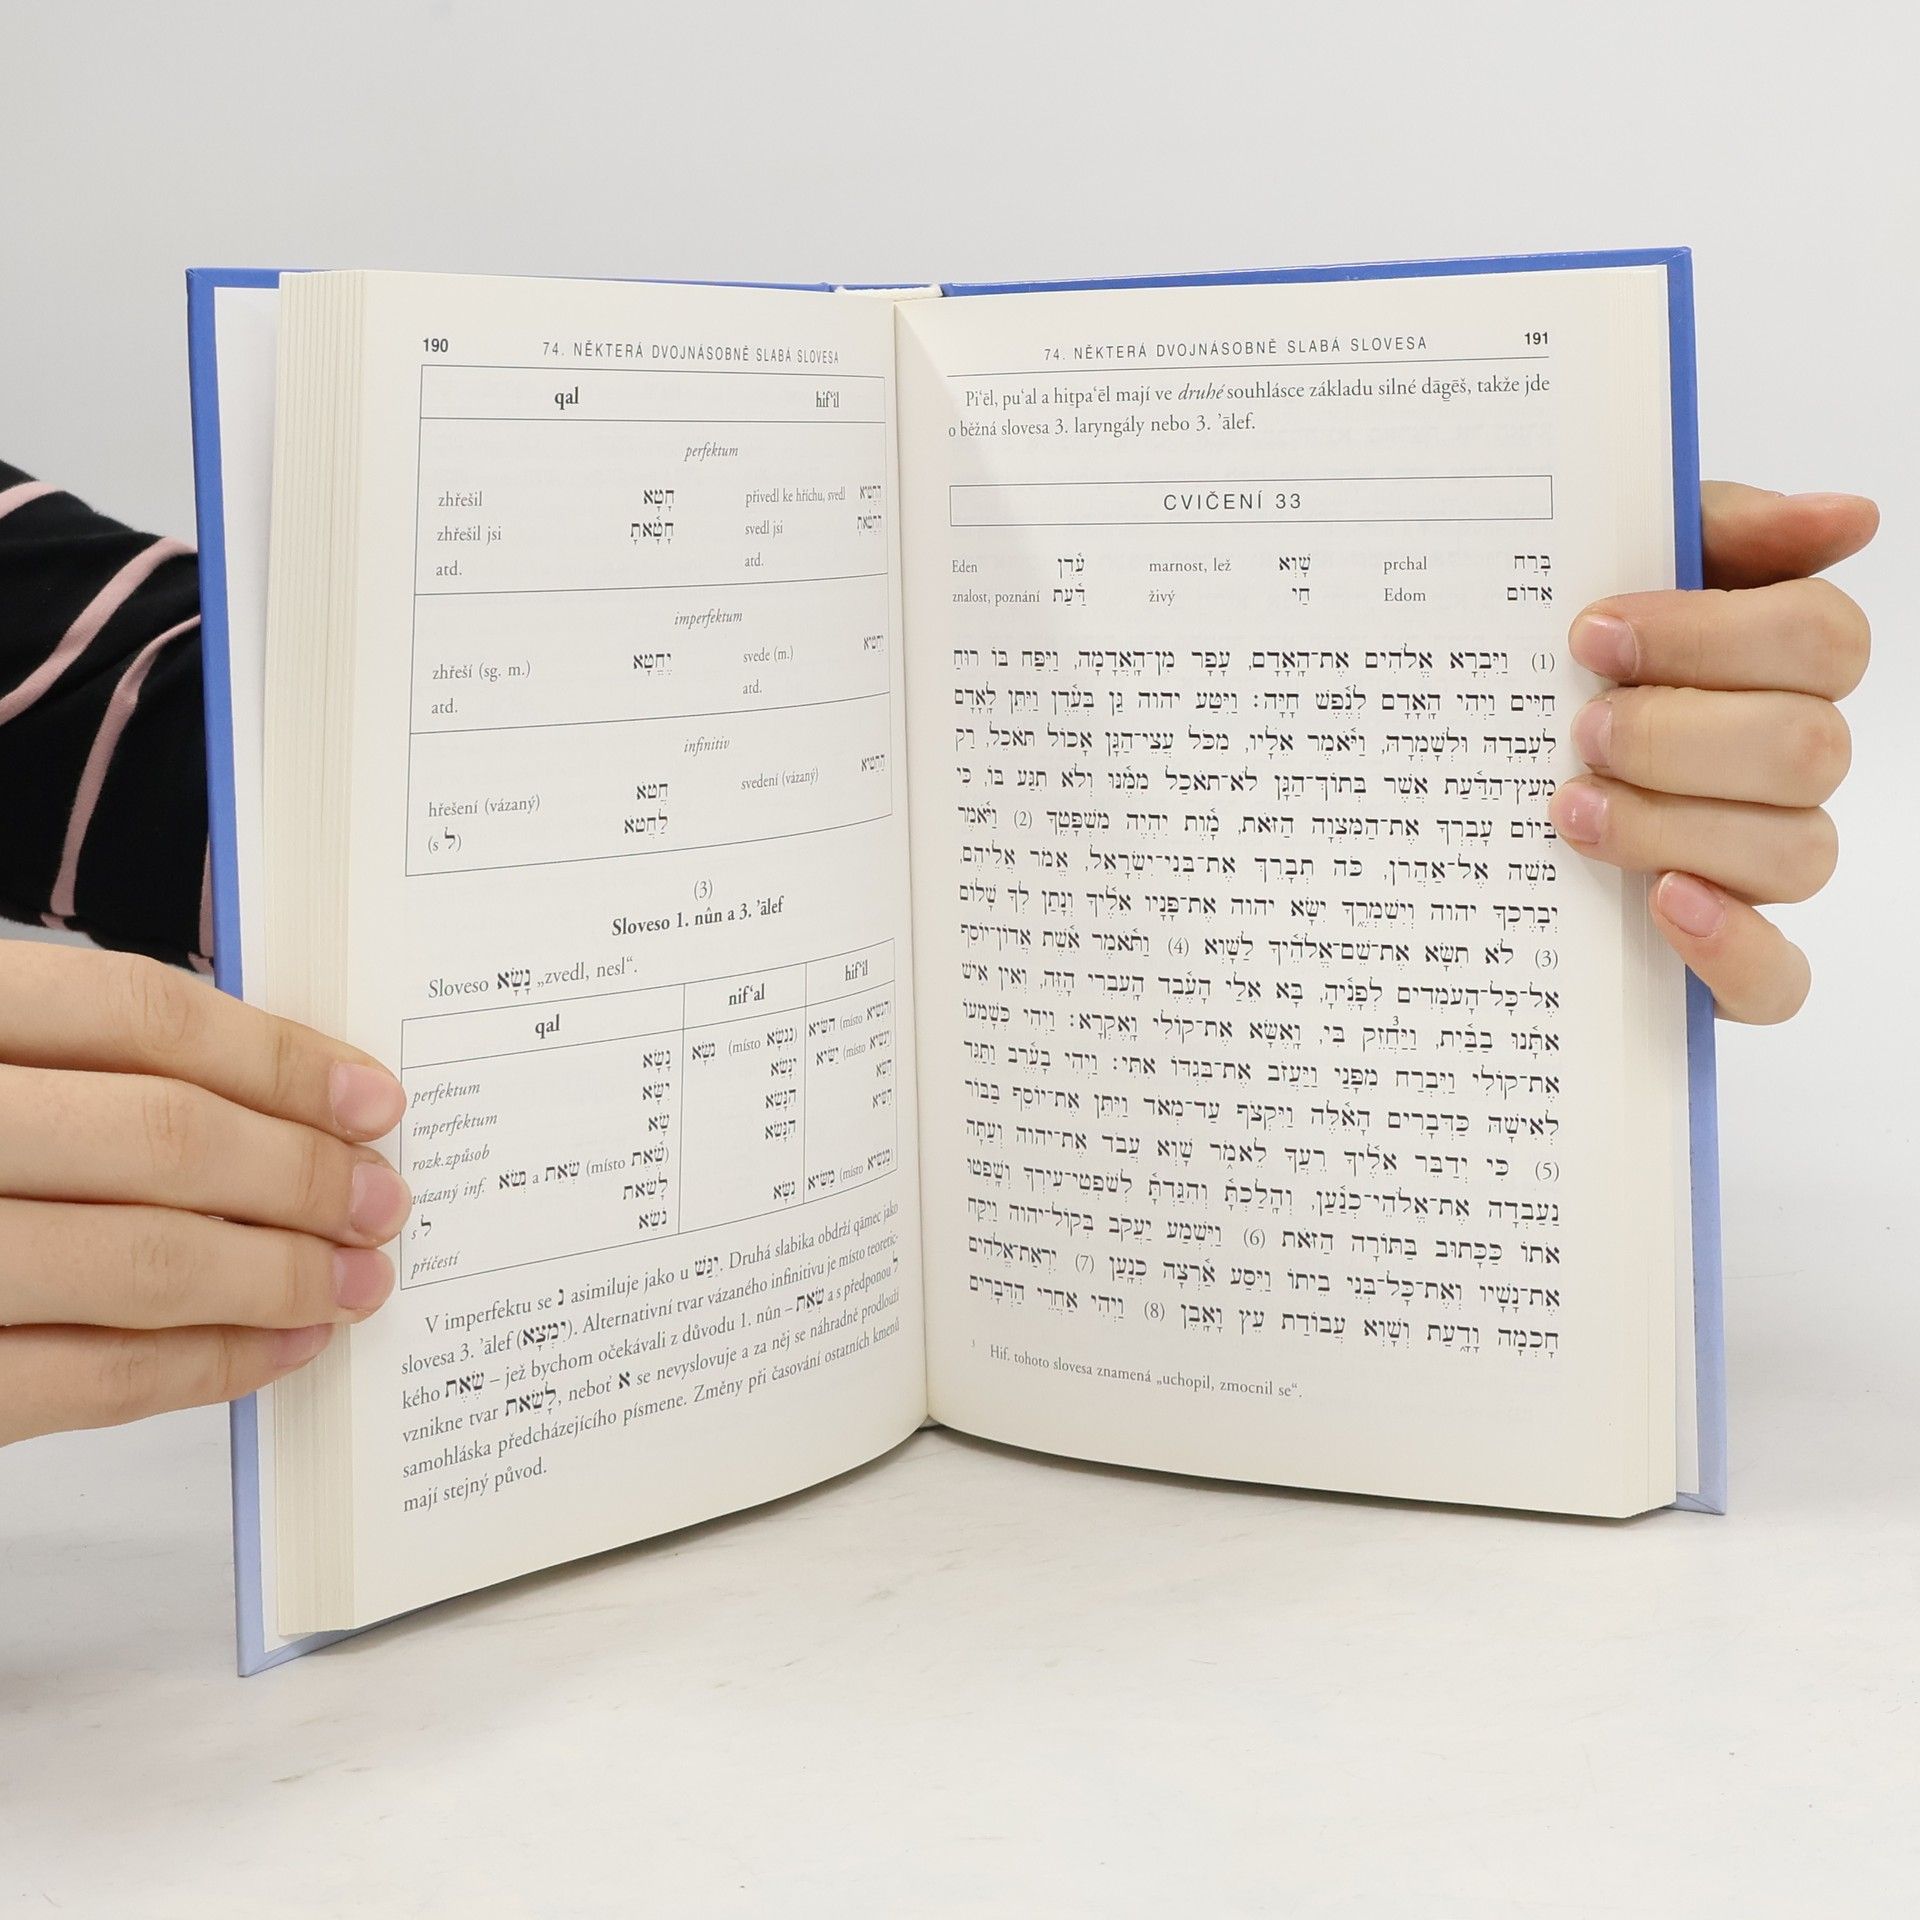 190
74. NĚKTERÁ DVOJNÁSOBNĚ SLABÁ SLOVESA
qal hif‘il
perfektum
zhřešil חָטָא přivedl ke hříchu, svedl הֶחֱטִיא
zhřešil jsi חָטָאתָ svedl jsi הֶחֱטֵאתָ
atd. atd.
imperfektum
zhřeší (sg. m.) יֶחֱטָא svede (m.) יַחֲטִיא
atd. atd.
infinitiv
hřešení (vázaný) חֲטֹא svedení (vázaný) הַחֲטִיא
(s לְ) לַחֲטֹא
(3)
Sloveso 1. nûn a 3. ’ālef
Sloveso נָשָׂא „zvedl, nesl“.
qal nif‘al hif‘il
perfektum נָשָׂא נִשָּׂא (místo נִנְשָׂא) הִשִּׂיא (místo הִנְשִׂיא)
imperfektum יִשָּׂא יִנָּשֵׂא יַשִּׂיא (místo יַנְשִׂיא)
rozk.způsob שָׂא הִנָּשֵׂא הַשֵּׂא
vázaný inf. נְשֹׂא a שְׂאֵת (místo שֶׂאֶת) הִנָּשֵׂא הַשִּׂיא
s לְ לָשֵׂאת
příčestí נֹשֵׂא נִשָּׂא מַשִּׂיא (místo מַנְשִׂיא)
V imperfektu se נ asimiluje jako u יִגַּשׁ. Druhá slabika obdrží qāmec jako
slovesa 3. ’ālef (יִמְצָא). Alternativní tvar vázaného infinitivu je místo teoretic-
kého שֶׂאֶת – jež bychom očekávali z důvodu 1. nûn – שְׂאֵת a s předponou לְ
vznikne tvar לָשֵׂאת, neboť א se nevyslovuje a za něj se náhradně prodlouží
samohláska předcházejícího písmene. Změny při časování ostatních kmenů
mají stejný původ.
74. NĚKTERÁ DVOJNÁSOBNĚ SLABÁ SLOVESA
191
Pi‘ēl, pu‘al a hiṯpa‘ēl mají ve druhé souhlásce základu silné dāḡēš, takže jde
o běžná slovesa 3. laryngály nebo 3. ’ālef.
CVIČENÍ 33
Eden עֵדֶן marnost, lež שָׁוְא prchal בָּרַח
znalost, poznání דַּעַת živý חַי Edom אֱדוֹם
(1) וַיִּבְרָא אֱלֹהִים אֶת־הָאָדָם, עָפָר מִן־הָאֲדָמָה, וַיִּפַּח בּוֹ רוּחַ
חַיִּים וַיְהִי הָאָדָם לְנֶפֶשׁ חַיָּה: וַיִּטַּע יהוה גַּן בְּעֵדֶן וַיִּתֵּן לָאָדָם
לְעָבְדָהּ וּלְשָׁמְרָהּ, וַיֹּאמֶר אֵלָיו, מִכֹּל עֲצֵי־הַגָּן אָכוֹל תֹּאכֵל, רַק
מֵעֵץ־הַדַּעַת אֲשֶׁר בְּתוֹךְ־הַגָּן לֹא־תֹאכַל מִמֶּנּוּ וְלֹא תִגַּע בּוֹ, כִּי
בְּיוֹם עָבְרְךָ אֶת־הַמִּצְוָה הַזֹּאת, מָוֶת יִהְיֶה מִשְׁפָּטֶךָ (2) וַיֹּאמֶר
מֹשֶׁה אֶל־אַהֲרֹן, כֹּה תְבָרֵךְ אֶת־בְּנֵי־יִשְׂרָאֵל, אֱמֹר אֲלֵיהֶם,
יְבָרֶכְךָ יהוה וְיִשְׁמְרֶךָ יִשָּׂא יהוה אֶת־פָּנָיו אֵלֶיךָ וְנָתַן לְךָ שָׁלוֹם
(3) לֹא תִשָּׂא אֶת־שֵׁם־אֱלֹהֶיךָ לַשָּׁוְא (4) וַתֹּאמֶר אֵשֶׁת אֲדוֹן־יוֹסֵף
אֶל־כָּל־הָעֹמְדִים לְפָנֶיהָ, בָּא אֵלַי הָעֶבֶד הָעִבְרִי הַזֶּה, וְאֵין אִישׁ
אִתָּנוּ בַּבַּיִת, וַיַּחֲזֵק³ בִּי, וָאֶשָּׂא אֶת־קוֹלִי וָאֶקְרָא: וַיְהִי כְּשָׁמְעוֹ
אֶת־קוֹלִי וַיִּבְרַח מִפָּנַי וַיַּעֲזֹב אֶת־בִּגְדוֹ אִתִּי: וַיְהִי בָעֶרֶב וַתַּגֵּד
לְאִישָׁהּ כַּדְּבָרִים הָאֵלֶּה וַיִּקְצֹף עַד־מְאֹד וַיִּתֵּן אֶת־יוֹסֵף בַּבּוֹר
(5) כִּי יְדַבֵּר אֵלֶיךָ רֵעֲךָ לֵאמֹר שָׁוְא עֲבֹד אֶת־יהוה וְעַתָּה
נַעַבְדָה אֶת־אֱלֹהֵי־כְנַעַן, וְהָלַכְתָּ וְהִגַּדְתָּ לְשֹׁפְטֵי־עִירְךָ וְשָׁפְטוּ
אֹתוֹ כַּכָּתוּב בַּתּוֹרָה הַזֹּאת (6) וַיִּשְׁמַע יַעֲקֹב בְּקוֹל־יהוה וַיִּקַּח
אֶת־נָשָׁיו וְאֶת־כָּל־בְּנֵי בֵיתוֹ וַיִּסַּע אַרְצָה כְנָעַן (7) יִרְאַת־אֱלֹהִים
חָכְמָה וָדָעַת וְשָׁוְא עֲבוֹדַת עֵץ וָאָבֶן (8) וַיְהִי אַחֲרֵי הַדְּבָרִים
³ Hif. tohoto slovesa znamená „uchopil, zmocnil se“.